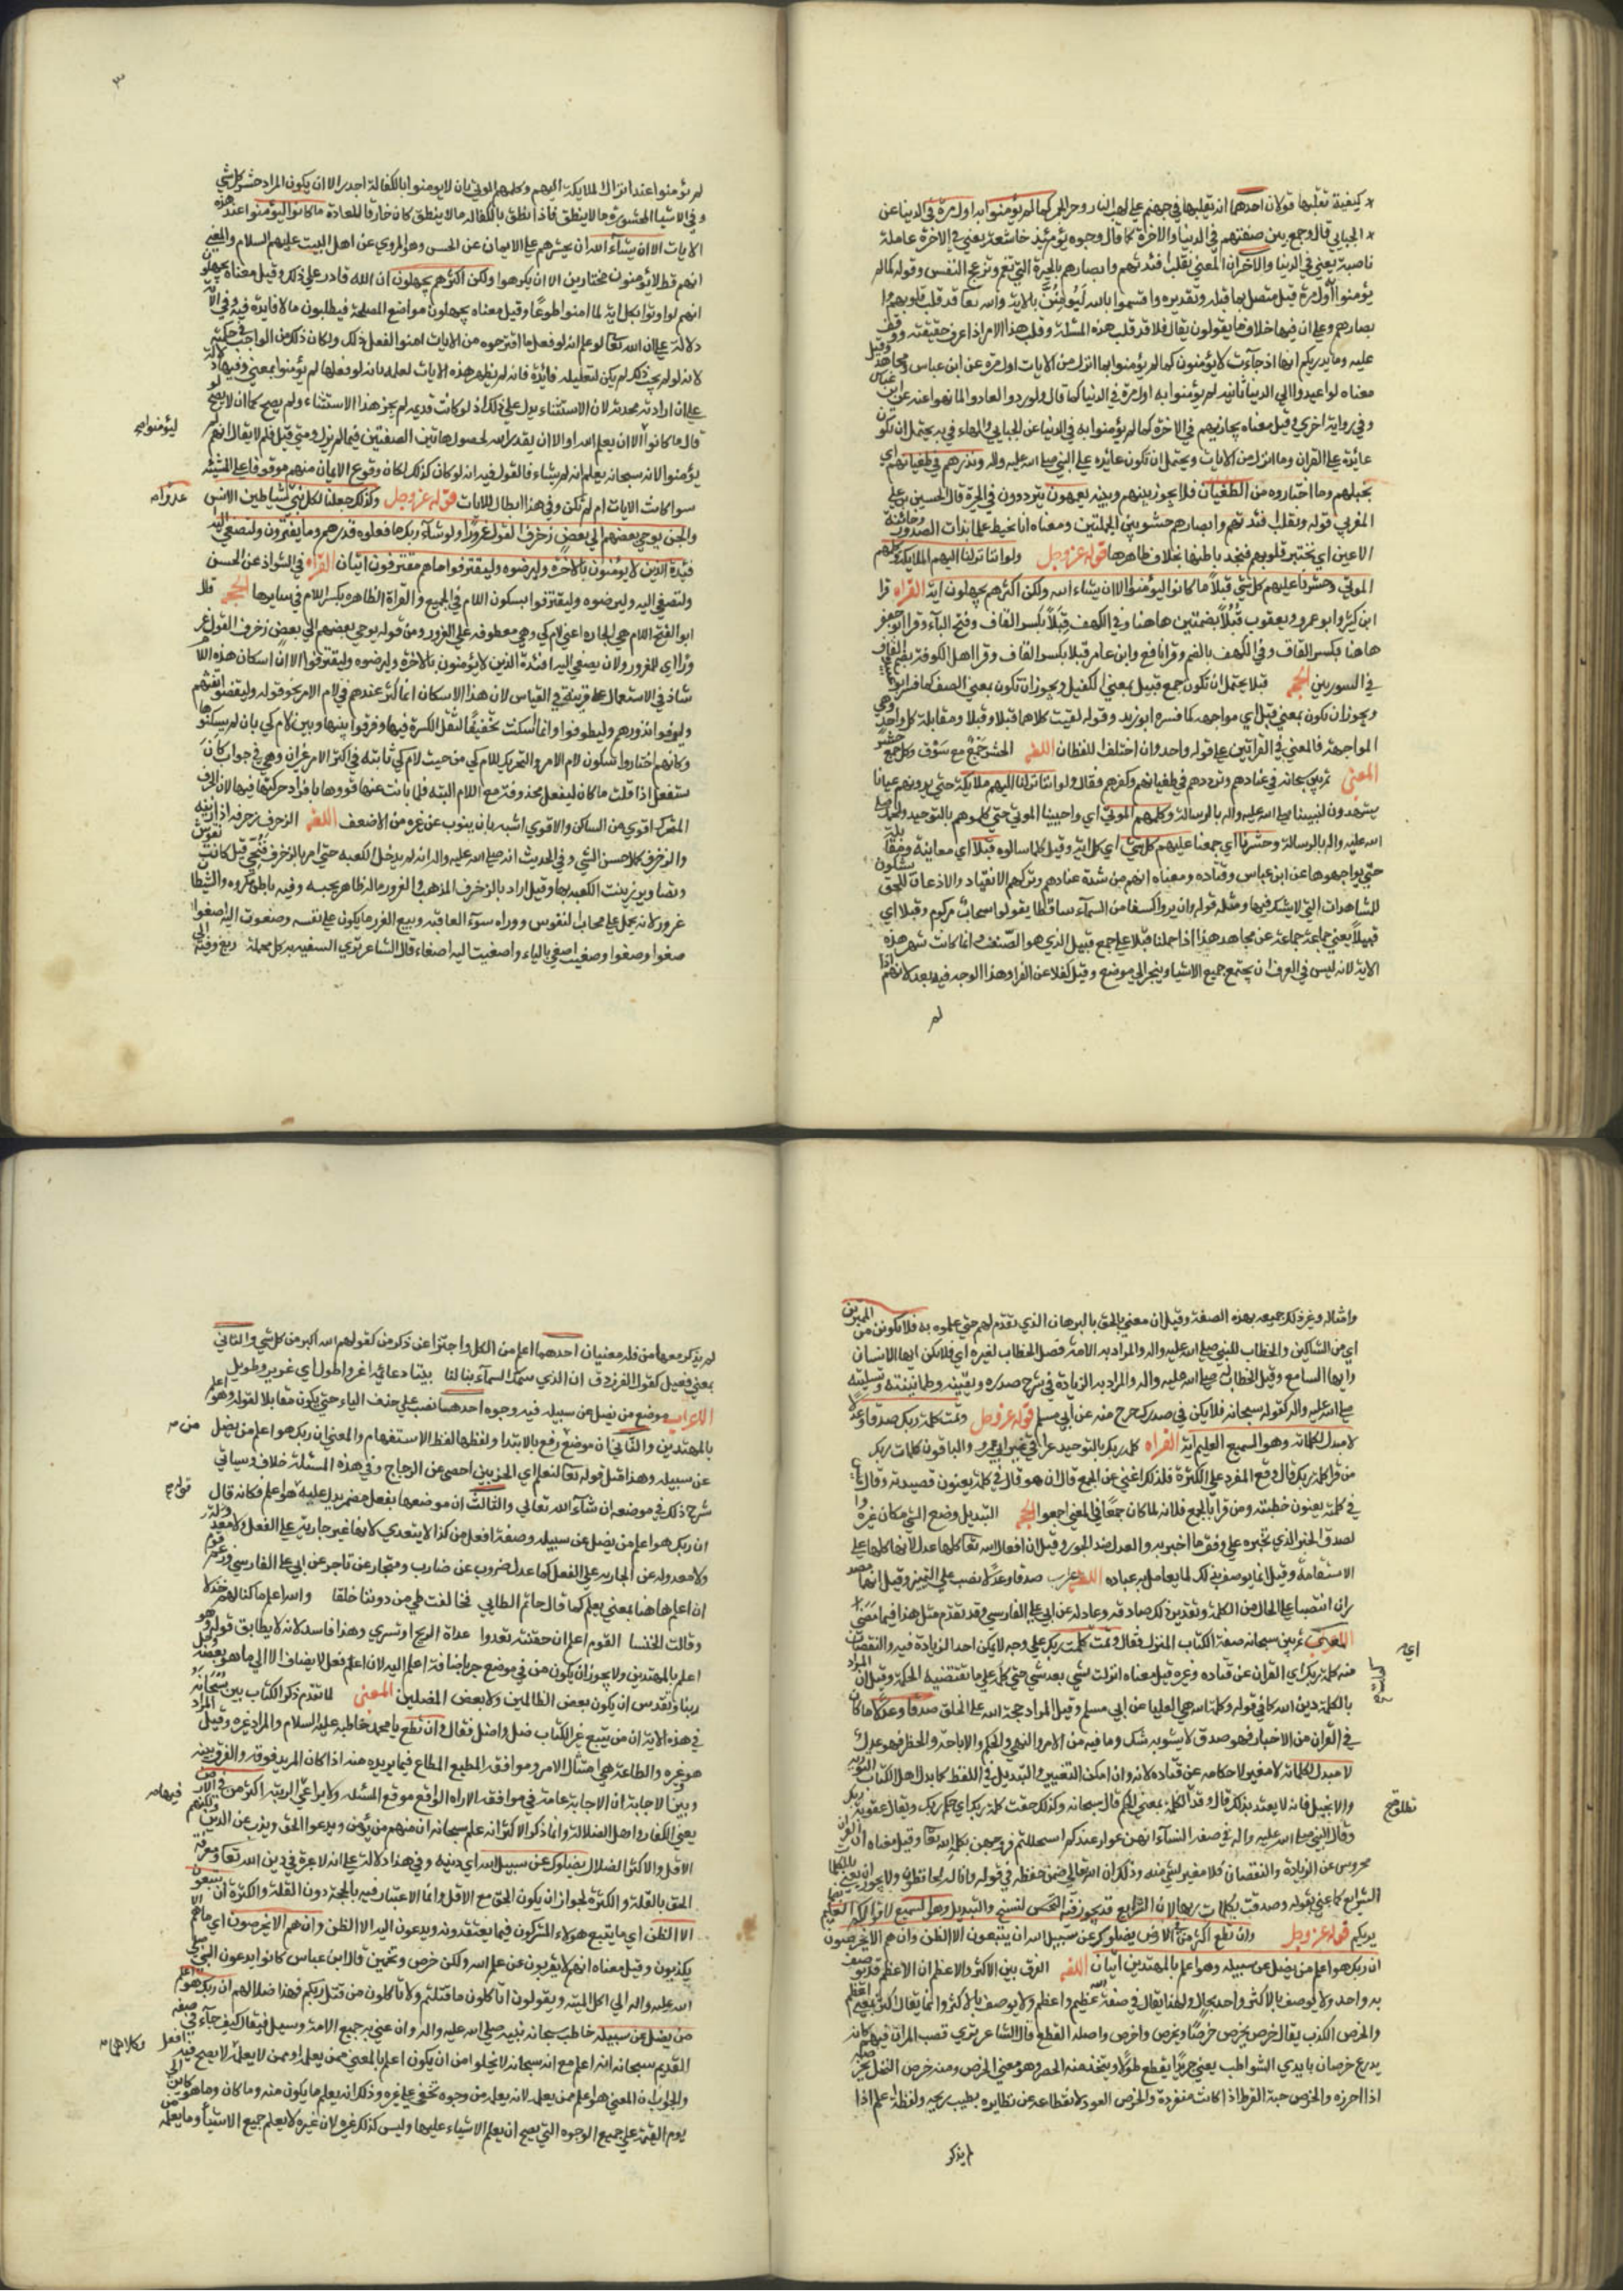 كيفية تقلبها قولان احدهما انه يقلبها في جهنم على لهب النار وحر الجمر كما لم يؤمنوا به اول مرة في الدنيا عن
الجبائي قال وجمع بين صفتهم في الدنيا والاخرة كما قال وجوه يومئذ خاشعة يعني في الاخرة عاملة
ناصبة يعني في الدنيا والاخر ان المعنى نقلب افئدتهم وابصارهم بالحيرة التي تغم وتزعج النفس وقوله كما لم
يؤمنوا به اول مرة قيل متصل بما قبله وتقديره واقسموا بالله ليؤمنن بالاية والله تعا قد قلب قلوبهم وا
بصارهم وعلم ان فيها خلاف ما يقولون يقال فلان قد قلب هذه المسئلة وقلب هذا الامر اذا عرف حقيقته ووقف
عليه وما يدريكم انها اذا جآءت لا يؤمنون كما لم يؤمنوا بما انزل من الايات اول مرة عن ابن عباس ومجاهد وقيل
معناه لو اعيدوا الى الدنيا ثانية لم يؤمنوا به اول مرة في الدنيا كما قال ولو ردوا لعادوا لما نهوا عنه عن ابن عباس
وفي رواية اخرى وقيل معناه يجازيهم في الاخرة كما لم يؤمنوا به في الدنيا عن الجبايي والهاء في به يحتمل ان تكون
عائدة على القران وما انزل من الايات ويحتمل ان تكون عائدة على النبي صلى الله عليه واله ونذرهم في طغيانهم اي
نخيلهم وما اختاروه من الطغيان فلا يجوز بينهم وبينه يعمهون يترددون في الحيرة قال الحسين بن علي
المغربي قوله ونقلب افئدتهم وابصارهم حشو بين الجملتين ومعناه انا نحيط علما بذات الصدور وخائنة
الاعين اي نختبر قلوبهم فنجد باطنها بخلاف ظاهرها قوله عز وجل ولو اننا نزلنا اليهم الملايكة وكلمهم
الموتى وحشرنا عليهم كل شي قبلا ما كانوا ليؤمنوا الا ان يشاء الله ولكن اكثرهم يجهلون اية القراه قرا
ابن كثير وابو عمرو ويعقوب قبلا بضمتين هاهنا وفي الكهف قبلا بكسر القاف وفتح البآء وقرا ابو جعفر
هاهنا بكسر القاف وفي الكهف بالضم وقرا نافع وابن عامر قبلا بكسر القاف وقرا اهل الكوفة بضم القاف
في السورتين الحجه قبلا يحتمل ان تكون جمع قبيل بمعنى الكفيل ويجوز ان تكون بمعنى الصنف كما فسر ابو عبيدة
ويجوز ان يكون بمعنى قبل اي مواجهه كما فسره ابو زيد وقوله لقيت كلاهما قبلا وقبلا ومقابلة كل واحد وهي
المواجهة فالمعنى في القراتين على قوله واحد وان اختلف اللفظان اللغه الحشر جمع مع سوق وكل جمع حشر
المعنى ثم بين سبحانه في عنادهم وترددهم في طغيانهم وكفرهم فقال ولو اننا نزلنا اليهم ملايكة حتى يرونهم عيانا
يشهدون لنبينا صلى الله عليه واله بالرسالة وكلمهم الموتى اي واحيينا الموتى حتى كلموهم بالتوحيد
الله عليه واله بالرسالة وحشرنا اي جمعنا عليهم كل شي اي كل اية وقيل كلما سالوه قبلا اي معاينة ومقابلة
حتى يواجهوها عن ابن عباس وقتاده ومعناه انهم من شدة عنادهم وتركهم الانقياد والاذعان للحق يشكون
للمشاهدات التي لا يشك فيها ومثله قوله وان يروا كسفا من السمآء ساقطا يقولوا سحاب مركوم وقبلا اي
قبيلا بعني جماعة جماعة عن مجاهد هذا اذا حملنا قبلا على جمع قبيل الذي هو الصنف وانما كانت تشهر هذه
الاية لانه ليس في العرف ان يجتمع جميع الاشيا وينجر الى موضع وقيل كفلا عن الفرا وهذا الوجه فيه بعد لانهم اذا
لم
٣
لم يؤمنوا عند انزال الملايكة اليهم وكلمهم الموتى بان لا يومنوا بالكفالة اجدر الا ان يكون المراد حشر كل شي
وفي الاشيا المحشورة ما لا ينطق فاذا نطق بالكفاله ما لا ينطق كان خارقا للعادة ما كانوا ليؤمنوا عند هذه
الايات الا ان يشآء الله ان يجبرهم على الايمان عن الحسن وهو المروي عن اهل البيت عليهم السلام والمعنى
انهم قط لا يؤمنون مختارين الا ان يكرهوا ولكن اكثرهم يجهلون ان الله قادر على ذلك وقيل معناه يجهلون
انهم لو اوتوا بكل اية لما امنوا طوعا وقيل معناه يجهلون مواضع المصلحة فيطلبون ما لا فايدة فيه وفي الاية
دلالة على ان الله تعا لو علم انه لو فعل ما اقترحوه من الايات امنوا لفعل ذلك ولكان ذلك من الواجب في حكمته
لانه لو لم يجب ذلك لم يكن لتعليله فائدة فانه لم يظهر هذه الايات لعلمه بانه لو فعلها لم يؤمنوا بمعنى وفيها دلالة
على ان ارادته محدثة لان الاستثناء يدل على ذلك اذ لو كانت قديمه لم يجز هذا الاستثناء ولم يصح كما ان لا يصح لو
قال ما كانوا الا ان يعلم الله او الا ان يقدر الله لحصول هاتين الصفتين فيما لم يزل ومتى قيل فلم لا يقال انهم لم
ليؤمنوا صح
يؤمنوا لانه سبحانه يعلم انه لم يشاء فالقول فيه انه لو كان كذلك لكان وقوع الايمان منهم موقوفا على المشيئة
سوا كانت الايات ام لم تكن وفي هذا ابطال للايات قوله عز وجل وكذلك جعلنا لكل نبي شياطين الانس
عدوا صح
والجن يوحي بعضهم الى بعض زخرف القول غرورا ولو شآء ربك ما فعلوه فذرهم وما يفترون ولتصغى اليه
فئدة الذين لا يؤمنون بالاخرة وليرضوه وليقترفوا ما هم مقترفون ايتان القراه في الشواذ عن الحسن
ولتصغى اليه وليرضوه وليقترفوا بسكون اللام في الجميع والقراة الظاهره بكسر اللام في سايرها الحجه قال
ابو الفتح اللام هي الجاره اعني لام كي وهي معطوفه على الغرور ومن قوله يوحي بعضهم الى بعض زخرف القول غر
ورا اي للغرور ولان يصغى اليه افئدة الذين لا يؤمنون بالاخرة وليرضوه وليقترفوا الا ان اسكان هذه اللام
شاذ في الاستعمال على قربته في القياس لان هذا الاسكان انما كثر عندهم في لام الامر نحو قوله وليقضوا تفثهم
وليوفوا نذورهم وليطوفوا وانما اسكنت تخفيفا لثقل الكسرة فيها وفرقوا بينها وبين لام كي بان لم يسكنوها
وكانهم اختاروا سكون لام الامر والتحريك للام كي من حيث لام كي نائبة في اكثر الامر عن ان وهي في جواب كان
سيفعل اذا قلت ما كان ليفعل محذوفة مع اللام البته فلما نابت عنها قووها باقرار حركتها فيها لان الحرف
المتحرك اقوى من الساكن والاقوى اشبه بان ينوب عن غيره من الاضعف اللغه الزخرف زخرفه اذا زينه
والزخرف كمال حسن الشي وفي الحديث انه صلى الله عليه واله انه لم يدخل الكعبه حتى امر بالزخرف فنحي قيل كانت نقوش
وتصاوير زينت الكعبه بها وقيل اراد بالزخرف المذهب والغرور ما له ظاهر يحبه وفيه باطن مكروه والشيطا
غرور لانه يحمل على محاب النفوس وورآه سوء العاقبه وبيع الغرر ما يكون على نفسه وصغوت اليه اصغو
صغوا وصغوا وصغيت اصغى بالياء واصغيت اليه اصغاء قال الشاعر ترى السفيه به كل محكمة زيغ وفيه الى
وامثاله وغير ذلك جميعه بهذه الصفة وقيل ان معنى بالحق بالبرهان الذي تقدم لهم حتى علموه به فلا تكونن من الممترين
اي من الشاكين والخطاب للنبي صلى الله عليه واله والمراد به الامة فصل الخطاب لغيره اي فلا تكن ايها الانسان
وايها السامع وقيل الخطاب له صلى الله عليه واله والمراد به الزيادة في شرح صدره ويقينه وطمانينته وتسليته
صلى الله عليه واله كقوله سبحانه فلا يكن في صدرك حرج منه عن ابي مسلم قوله عز وجل وتمت كلمة ربك صدقا وعدلا
لا مبدل لكلماته وهو السميع العليم اية القراه كلمة ربك بالتوحيد عراقي غير ابي عمرو والباقون كلمات ربك
من قرا كلمة ربك قال وقع المفرد على الكثرة فلذلك اغنى عن الجمع قال ان هو قال في كلمة يعنون قصيدته وقال
في كلمته يعنون خطبته ومن قرا بالجمع فلانه لما كان جمعا في المعنى اجمعوا الحجه التبديل وضع الشي مكان غيره وا
لصدق الخبر الذي نخبره على وفق ما اخبر به والعدل ضد الجور وقيل ان افعال الله تعا كلها عدل لانها كلها على
الاستقامة وقيل انما يوصف بذلك لما يعامل به عباده الاعراب صدقا وعدلا نصب على التمييز وقيل انهما مصد
ران انتصبا على الحال من الكلمة وتقديره ذلك صادقه وعادله عن ابي علي الفارسي وقد تقدم مثل هذا فيما مضى
المعنى ثم بين سبحانه صفة الكتاب المنزل فقال وتمت كلمت ربك على وجه لا يمكن احد الزيادة فيه والنقصان
اي
منه كلمة ربك اي القران عن قتاده وغيره قيل معناه انزلت شي بعد شي حتى كملت على ما تقتضيه الحكمة وقيل ان المراد
بالكلمة دين الله كما في قوله وكلمة الله هي العليا عن ابي مسلم وقيل المراد حجة الله على الخلق صدقا وعدلا ما كان
في القران من الاخبار فهو صدق لا يشوبه شك وما فيه من الامر والنهي والحكم والاباحة والحظر فهو عدل
لا مبدل لكلماته لا مغير لاحكامه عن قتاده لانه وان امكن التغيير والتبديل في اللفظ كما بدل اهل الكتاب التورية
والانجيل فانه لا يعتد بذلك قال وقد الكلمة بمعنى الحكم قال سبحانه وكذلك حقت كلمة ربك اي حكم ربك ويقال عقوبة ربك
تطلق صح
وقال النبي صلى الله عليه واله في صفة النسآء انهن عوار عندكم استحللتم فروجهن بكلمة الله تعا وقيل معناه ان القران
محروس عن الزيادة والنقصان فلا مغير لشي منه وذلك ان الله تعالى ضمن حفظه في قوله وانا له لحافظون ولا يجوز ان يعني بالكلمات
الشرايع كما عني بقوله وصدقت بكلمات ربها لان الشرايع قد يجوز فيها النسخ والتبديل وهو السميع لاقوالكم العليم بما
يريكم قوله عز وجل وان تطع اكثر من في الارض يضلوك عن سبيل الله ان يتبعون الا الظن وان هم الا يخرصون
ان ربك هو اعلم من يضل عن سبيله وهو اعلم بالمهتدين ايتان اللغه الفرق بين الاكثر والاعظم ان الاعظم قد يوصف
به واحد ولا يوصف بالاكثر واحد بحال ولهذا يقال في صفة الله عظيم واعظم ولا يوصف بالاكثر وانما يقال اكبر بمعنى اعظم
والخرص الكذب يقال خرص يخرص خرصا وتخرص واخرص واصله القطع قال الشاعر ترى قصب المران فيهم كانه
يدرع خرصان بايدي الشواطب يعني جريدا يقطع طولا ويتخذ منه الحصر وهو معنى الخرص ومنه خرص النخل يخرصه
اذا احرزه والخرص حبة القرط اذا كانت منفردة والخرص العود لانقطاعه عن نظايره بطيب ريحه ولفظة اعلم اذا
لم يذكر
لم يذكر معها من فله معنيان احدهما اعلم من الكل واجتزا عن ذكر من كقولهم الله اكبر من كل شي والثاني
بمعنى فعيل كقول الفرزدق ان الذي سمك السمآء بنا لنا بيتا دعائمه اعز واطول اي عزيز وطويل
الاعراب موضع من يضل عن سبيله فيه وجوه احدها نصب على حذف الباء حتى يكون مقابلا لقوله وهو اعلم
بالمهتدين والثاني ان موضع رفع بالابتدا ولفظها لفظ الاستفهام والمعنى ان ربك هو اعلم من يضل
من صح
عن سبيله وهذا مثل قوله تعا لنعلم اي الحزبين احصى عن الزجاج وفي هذه المسئلة خلاف وسياتي
شرح ذلك في موضعه ان شآء الله تعالى والثالث ان موضعها بفعل مضمر يدل عليه هو اعلم فكانه قال
قوله صح
ان ربك هو اعلم من يضل عن سبيله وصفة افعل من كذا لا يتعدى لانها غير جارية على الفعل ولا معدولة
ولا معدوله عن الجاريه على الفعل كما عدل ضروب عن ضارب ومنجار عن تاجر عن ابي علي الفارسي وزعم قوم
ان اعلم هاهنا بمعنى يعلم كما قال حاتم الطايي فحالفت طي من دوننا حلفا والله اعلم ما كنا لهم خذلا
وقالت الخنسا القوم اعلم ان جفنته تغدوا غداة الريح او تسري وهذا فاسد لانه لا يطابق قوله وهو
اعلم بالمهتدين ولا يجوز ان يكون من في موضع جر باضافة اعلم اليه لان اعلم فعل لا يضاف الا الى ما هو بعضه وجل
ربنا وتقدس ان يكون بعض الظالمين ولا بعض المضلين المعنى لما تقدم ذكر الكتاب بين سبحانه
في هذه الاية ان من يتبع غير الكتاب ضل واضل فقال وان تطع يا محمد خاطبه عليه السلام والمراد غيره وقيل المراد
هو غيره والطاعة هي امتثال الامر وموافقة المطيع المطاع فيما يريده منه اذا كان المريد فوقه والفرق بينه
وبين الاجابة ان الاجابة عامة في موافقة الاراده الواقع موقع المسئله ولا يراعى الرتبه اكثر من في الارض
يعني الكفار واهل الضلالة وانما ذكر الاكثر لانه علم سبحانه ان منهم من يؤمن ويدعوا الحق ويذب عن الدين ولكنهم
فيها صح
الاقل والاكثر الضلال يضلوك عن سبيل الله اي دينه وفي هذا دلالة على انه لا عبرة في دين الله تعا ومعرفة
الحق بالقلة والكثرة لجواز ان يكون الحق مع الاقل وانما الاعتبار فيه بالحجة دون القلة والكثرة ان يتبعون
الا الظن اي ما يتبع هولاء المشركون فيما يعتقدونه ويدعون اليه الا الظن وان هم الا يخرصون اي ما هم الا
يكذبون وقيل معناه انهم لا يقربون عن علم الله ولكن خرص وتخمين قال ابن عباس كانوا يدعون النبي صلى
الله عليه واله الى اكل الميته ويقولون اتاكلون ما قتلتم ولا تاكلون من قتل ربكم فهذا ضلالهم ان ربك هو اعلم
من يضل عن سبيله خاطب سبحانه نبيه صلى الله عليه واله وان عنى به جميع الامة وسيل فيقال كيف جآء في صفة
القديم سبحانه انه اعلم مع انه سبحانه لا يخلوا من ان يكون اعلم بالمعنى ممن يعلم او ممن لا يعلم لا يصح فيه افعل
وكلاهما صح
والجواب ان المعنى هو اعلم ممن يعلم لانه يعلم من وجوه تخفى على غيره وذلك انه يعلم ما يكون منه وما كان وما هو كائن
يوم القيمة على جميع الوجوه التي يصح ان يعلم الاشياء عليها وليس كذلك غيره لان غيره لا يعلم جميع الاشيآ وما يعلمه من